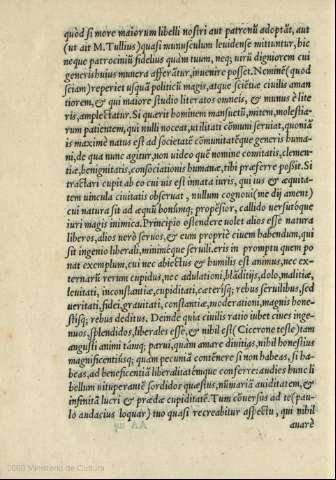 quòd si more maiorum libelli nostri aut patronũ adoptãt, aut
(ut ait M. Tullius) quasi munusculum leuidense mittuntur, hic
neque patrocinũ fidelius quàm tuum, neq; uirũ dignorem cui
generis huius munera afferãtur, inuenire posset. Neminẽ (quod
sciam) reperiet usquã politicũ magis, atque sciẽtiæ ciuilis aman
tiorem, & qui maiore studio literatos omneis, & munus è lite
ris, amplectatur. Si quærit hominem mansuetũ, mitem, molestia-
rum patientem, qui nulli noceat, utilitati cõmuni seruiat, quoniã
is maximè natus est ad societatẽ comunitatẽque generis huma=
ni, de qua nunc agitur, non uideo quẽ nomine comitatis, clemen=
tiæ, benignitatis, consociationis humanæ, tibi præferre possit. Si
tractari cupit ab eo cui uis est innata iuris, qui ius & æquita=
tem uincula ciuitatis obseruat, nullum cognoui (me dij ament)
cui natura sit ad æquũ bonũmq; propẽsior, callido uersutóque
iuri magis inimica. Principio ostendere uolet alios esse natura
liberos, alios uerò seruos, & eum propriè ciuem habendum, qui
sit ingenio liberali, minimẽque seruili. eris in promptu quem po
nat exemplum, cui nec abiectus & humilis est animus, nec ex=
ternarũ rerum cupidus, nec adulationi, blãditijs, dolo, malitiæ,
leuitati, inconstantiæ, cupiditati, cæterísq; rebus seruilibus, sed
ueritati, fidei, grauitati, constantiæ, moderationi, magnis hone=
stísq; rebus deditus. Deinde quia ciuilis ratio iubet ciues inge=
nuos, splendidos, liberales esse, & nihil est (Cicerone teste) tam
angusti animi tãmq; parui, quàm amare diuitias, nihil honestius
magnificentiúsq; quàm pecuniã contẽnere si non habeas, si ha=
beas, ad beneficentiã liberalitatẽmque conferre: audies hunc li
bellum uituperantẽ sordidos quæstus, nũmariã auiditatem, &
infinitã lucri & prædæ cupiditatẽ. Tum cõuersus ad te (pau=
lo audacius loquar) tuo quasi recreabitur aspectu, qui nihil
auarè
2008 Ministerio de Cultura